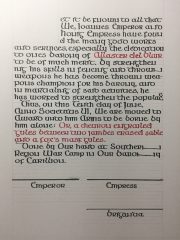 et it be known to all that
We, Ioannes Emperor and
Honig Empress have found
the many good works
and services, especially the dedication
to ones Barony of Master del War
to be of much merit. By strengthen-
ing his skills in fencing and thrown
weapons he has become thrown wea-
pons champion for his barony, and
in marshaling of said activities he
has worked to strengthen the populace.
Thus, on this Tenth day of June,
Anno Societatis VI, We are moved to
Award unto him Arms to be borne by
him alone: Or, a chevron engrailed
gules between two jambes erased sable
and a fox's mask gules.
Done by Our hand at Southern
Region War Camp in Our Barony
of Carillion.
Emperor Empress
Brigantia